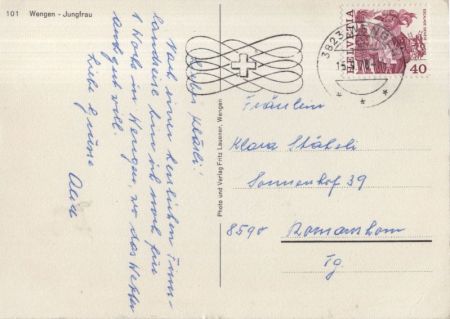 101 Wengen - Jungfrau
Liebes Kläsli!
Nach einer herrlichen Tour
bin ich noch für
1 Woche in Wengen, wo das Wetter
gut soll.
Liebe Grüsse
Photo und Verlag Fritz Lauener, Wengen
3823 WENGEN
HELVETIA
40
Fräulein
Klara Stäheli
Sonnenhof 39
8590 Romanshorn
Tg.